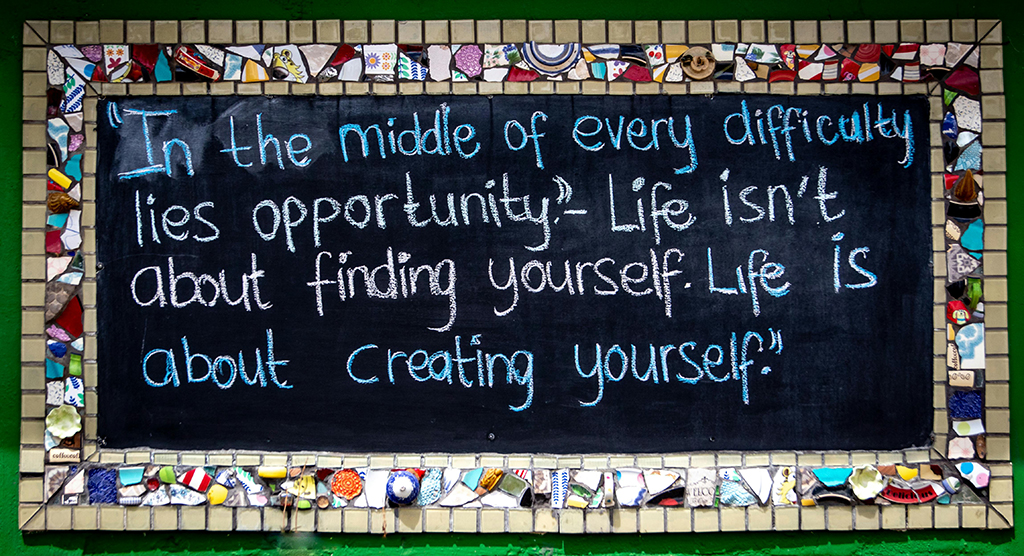 "In the middle of every difficulty
lies opportunity." - Life isn't
about finding yourself. Life is
about creating yourself."